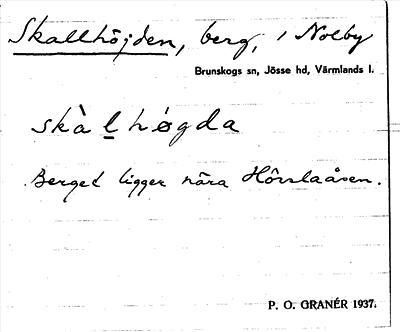 Skallhöjden, berg, i Nolby
Brunskogs sn, Jösse hd, Värmlands l.
skàl̲høgda
Berget ligger nära Hönslaåsen.
P. O. GRANÉR 1937.